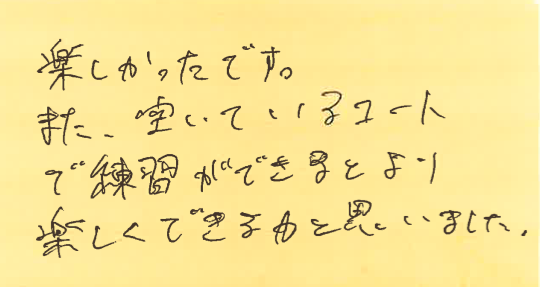 楽しかったです。
また、空いているコート
で練習ができるとより
楽しくできるかと思いました。